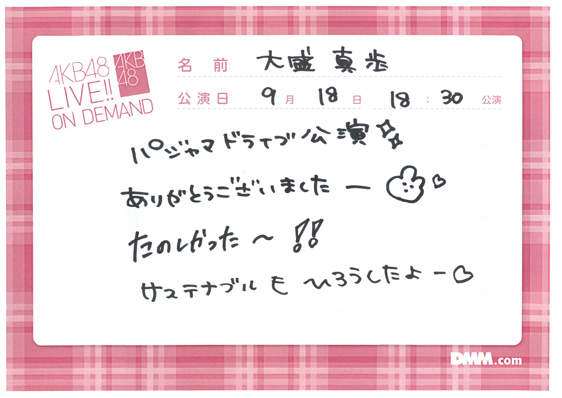 AKB48
LIVE!!
ON DEMAND
AKB
48
名前 大盛真歩
公演日 9月18日 18:30公演
パジャマドライブ公演
ありがとうございましたー
たのしかった〜!!
サステナブルもひろうしたよー♡
DMM.com